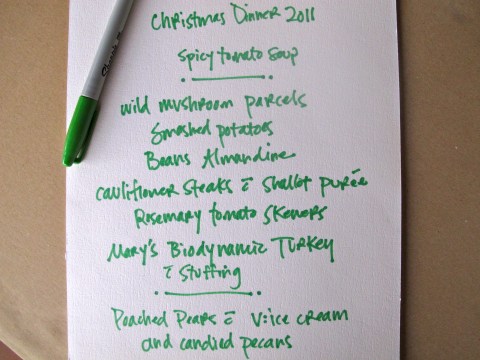 Christmas Dinner 2011
Spicy tomato soup
wild mushroom parcels
Smashed potatoes
Beans Almandine
Cauliflower Steaks c̄ Shallot purée
Rosemary tomato skewers
Mary's Biodynamic TURKEY
c̄ Stuffing
Poached Pears c̄ V:ice cream
and candied pecans
Sharpie